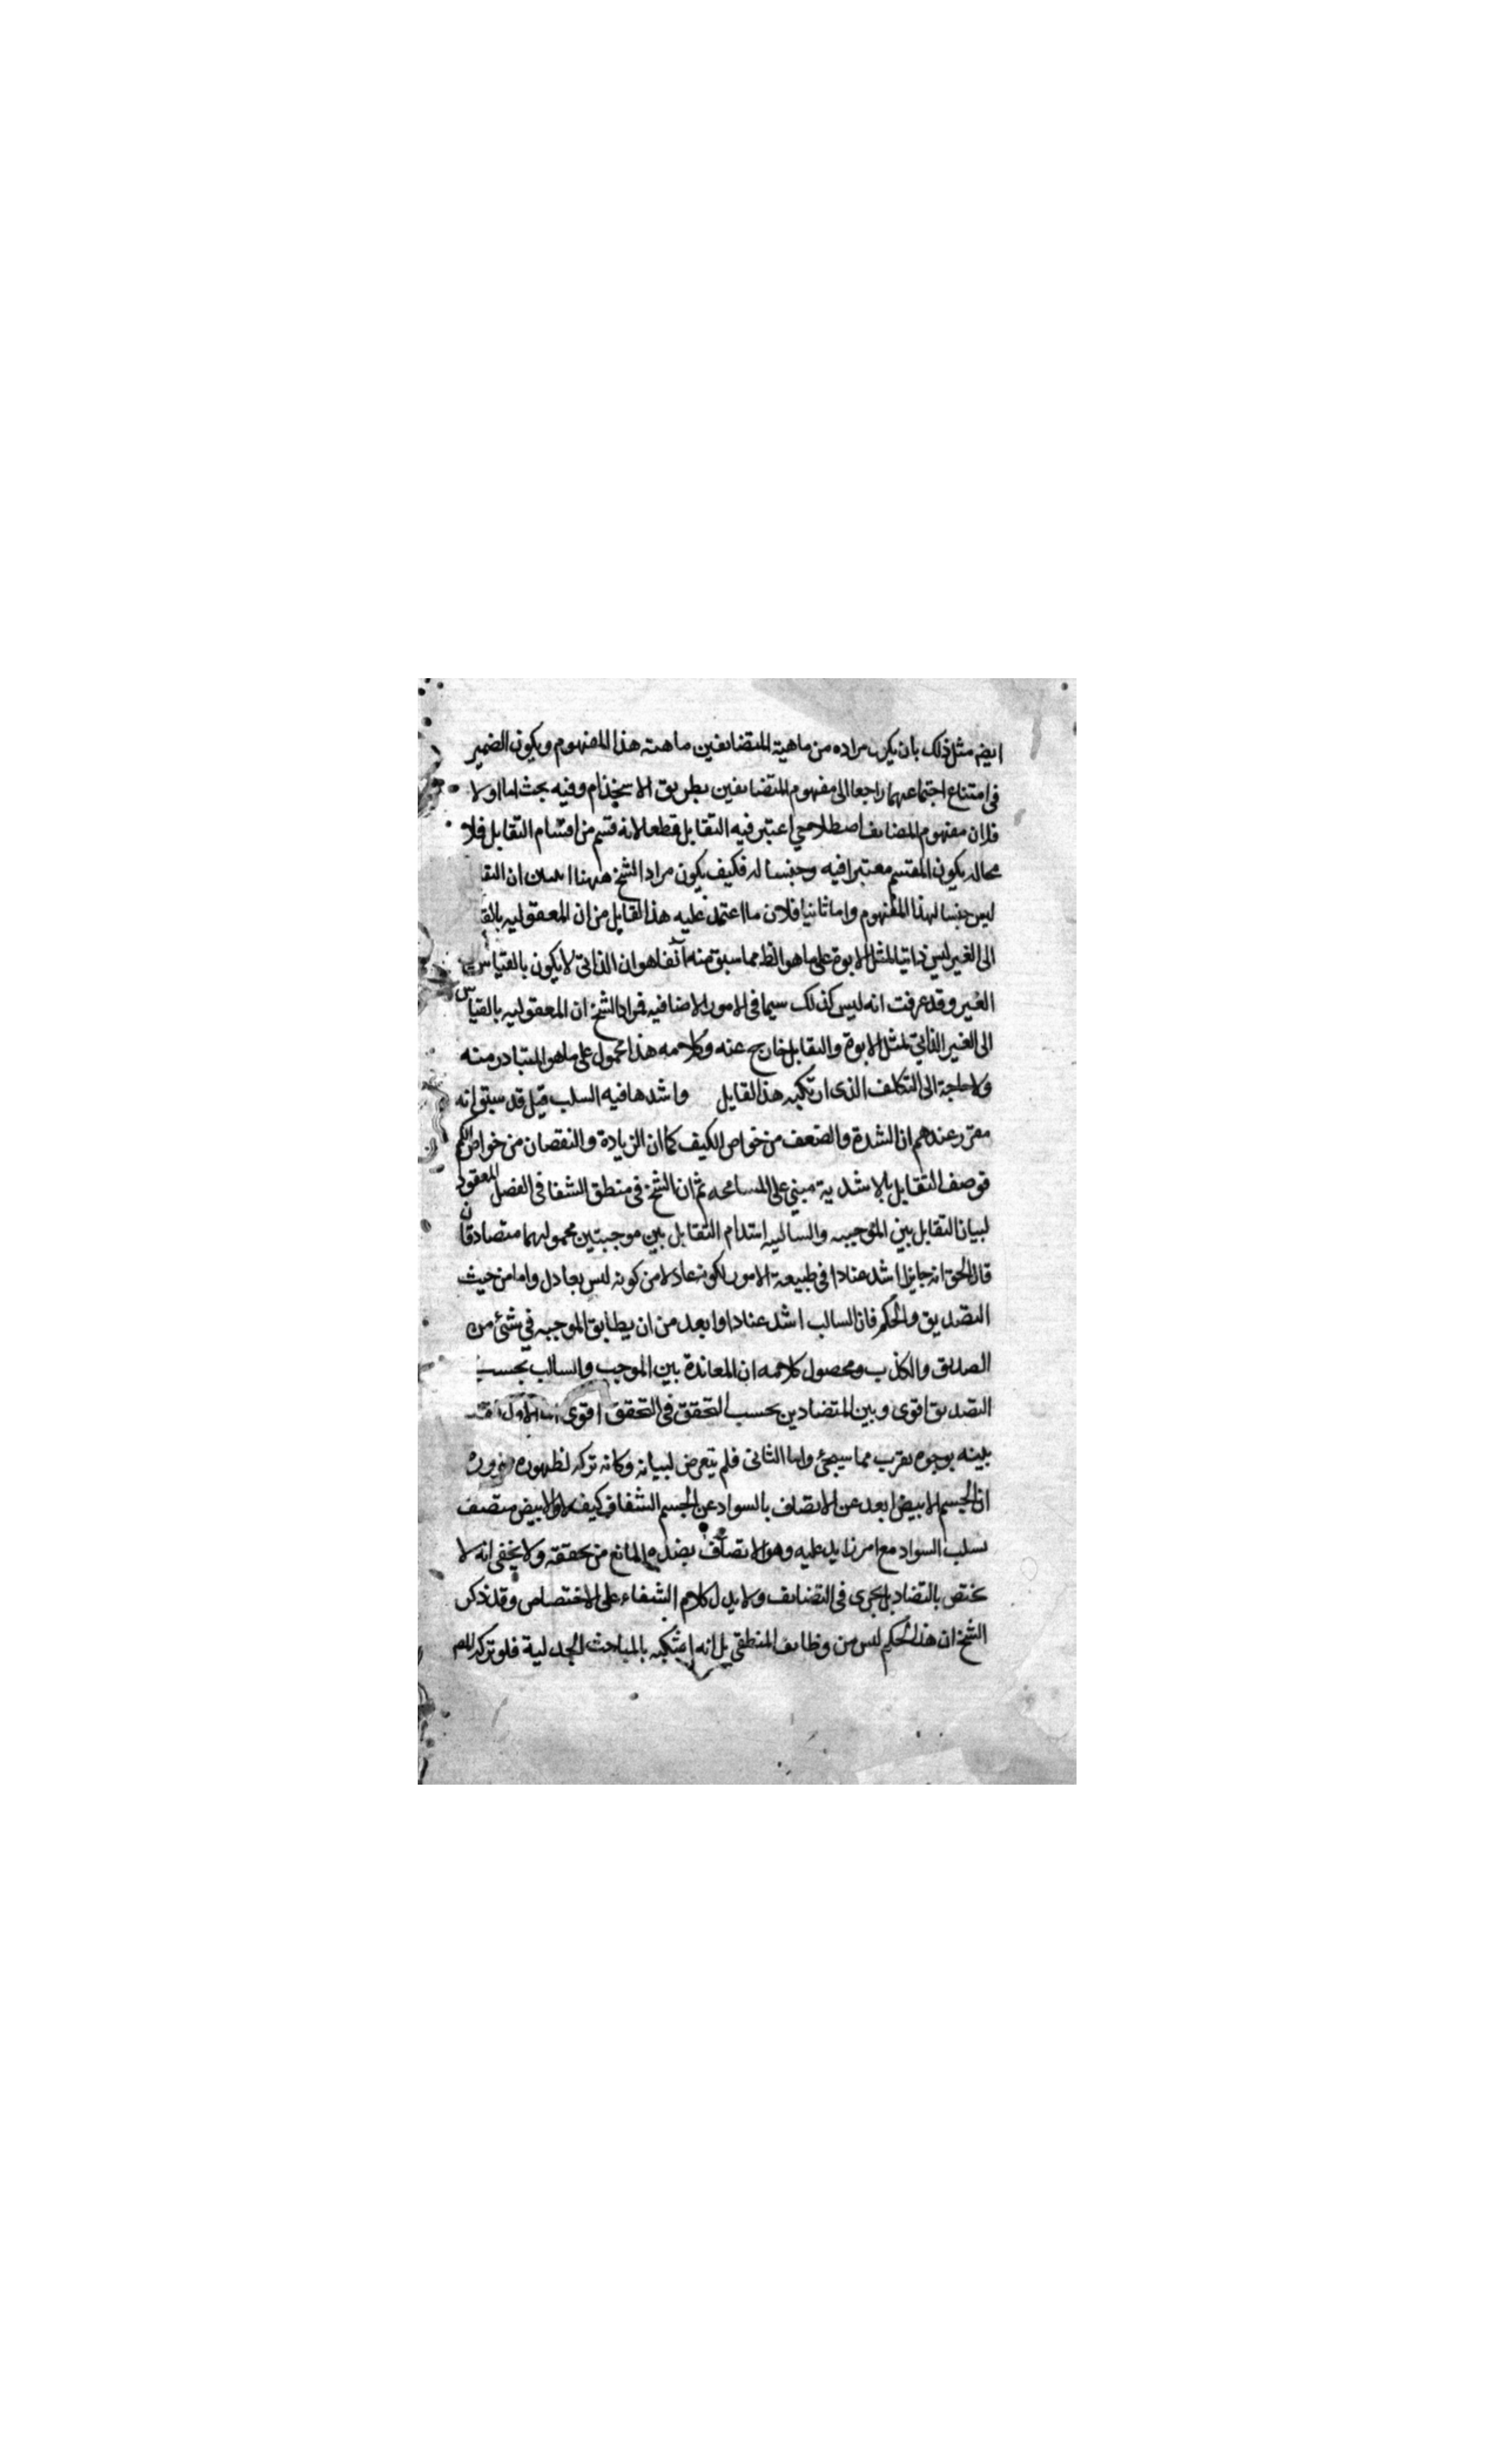 ايضه مثل ذلك بان يكون مراده من ماهية المتضايفين ماهية هذا المفهوم ويكون الضمير
فى امتناع اجتماعهما راجعا الى مفهوم المتضايفين بطريق الاستخدام وفيه بحث اما اولا
فلان مفهوم المضايف اصطلاحي اعتبر فيه التقابل قطعا لانه قسم من اقسام التقابل فلا
محاله يكون المقسم معتبرا فيه وجنسا له فكيف يكون مراد الشيخ ههنا ان التقا
ليس جنسا لهذا المفهوم واما ثانيا فلان ما اعتمد عليه هذا القايل من ان المعقوليه بالقيا
الى الغير ليس ذاتيا لمثل الابوة على ما هو الظ مما سبق منه آنفا هو ان الذاتى لا يكون بالقياس
الغير وقد عرفت انه ليس كذلك سيما فى الامور الاضافيه فمراد الشيخ ان المعقوليه بالقياس
الى الغير الذاتي لمثل الابوة والتقابل خارج عنه وكلامه هذا محمول على ما هو المتبادر منه
ولا حاجة الى التكلف الذى ارتكبه هذا القايل واشدها فيه السلب قيل قد سبق انه
مقرر عندهم ان الشدة والضعف من خواص الكيف كما ان الزيادة والنقصان من خواص الكم
فوصف التقابل بالاشدية مبني على المسامحه ثم ان الشيخ فى منطق الشفا فى الفصل المعقود
لبيان التقابل بين الموجبه والسالبه التقابل بين موجبتين محمولهما متصادقان
قال الحق انه جايز اشد عنادا فى طبيعة الامور لكونه عادلا من كونه ليس بعادل واما من حيث
التصديق والحكم فان السالب اشد عنادا وابعد من ان يطابق الموجبه في شئ من
الصدق والكذب ومحصول كلامه ان المعاندة بين الموجب والسالب بحسب
التصديق اقوى وبين المتضادين بحسب التحقق فى التحقق اقوى اما الاول فقد
بينه بوجوه يقرب مما سيجئ واما الثانى فلم يتعرض لبيانه وكانه تركه لظهوره ضرورة
ان الجسم الابيض ابعد عن الاتصاف بالسواد عن الجسم الشفاف كيف لا والابيض متصف
بسلب السواد مع امر زايد عليه وهو الاتصاف بضده المانع من تحققه ولا يخفى انه لا
يختص بالتضاد بل يجرى فى التضايف ولا يدل كلام الشفاء على الاختصاص وقد ذكر
الشيخ ان هذا الحكم ليس من وظايف المنطقي بل انه بالمباحث الجدلية فلو تركه المصه